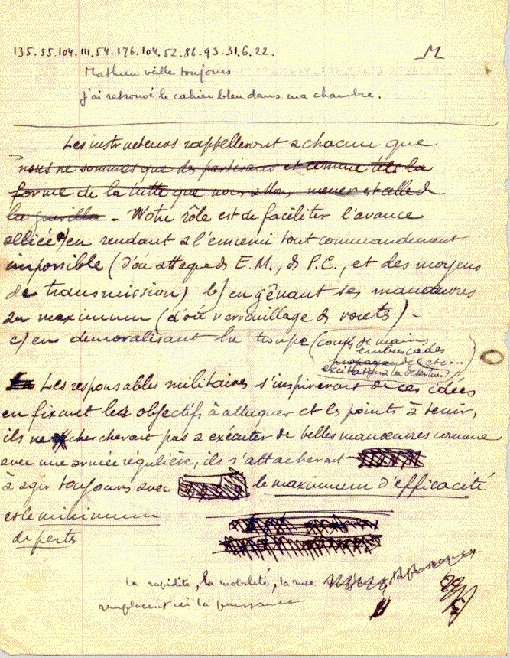 135.35.104.111.54.176.104.52.86.93.31.6.22. M
Mathieu veille toujours
j'ai retrouvé le cahier bleu dans ma chambre.
Les instructeurs rappelleront a chacun que
nous ne sommes que des partisans et comme tels la
forme de la lutte que nous allons mener est celle de
la guerilla - Notre rôle est de faciliter l'avance
alliée a/ en rendant a l'ennemi tout commandement
impossible (d'où attaque de E.M., de P.C., et des moyens
de transmission) b/ en gênant ses manœuvres
au maximum (d'où verrouillage de routes) -
c/ en demoralisant la troupe (coups de main
embuscades
propagande
Les responsables militaires s'inspireront de ces idées
en fixant les objectifs à attaquer et les points à tenir,
ils ne chercheront pas a exécuter de belles manœuvres comme
avec une armée régulière, ils s'attacheront
à agir toujours avec le maximum d'efficacité
et le minimum
de pertes
la rapidité, la mobilité, la ruse
remplacent ici la puissance